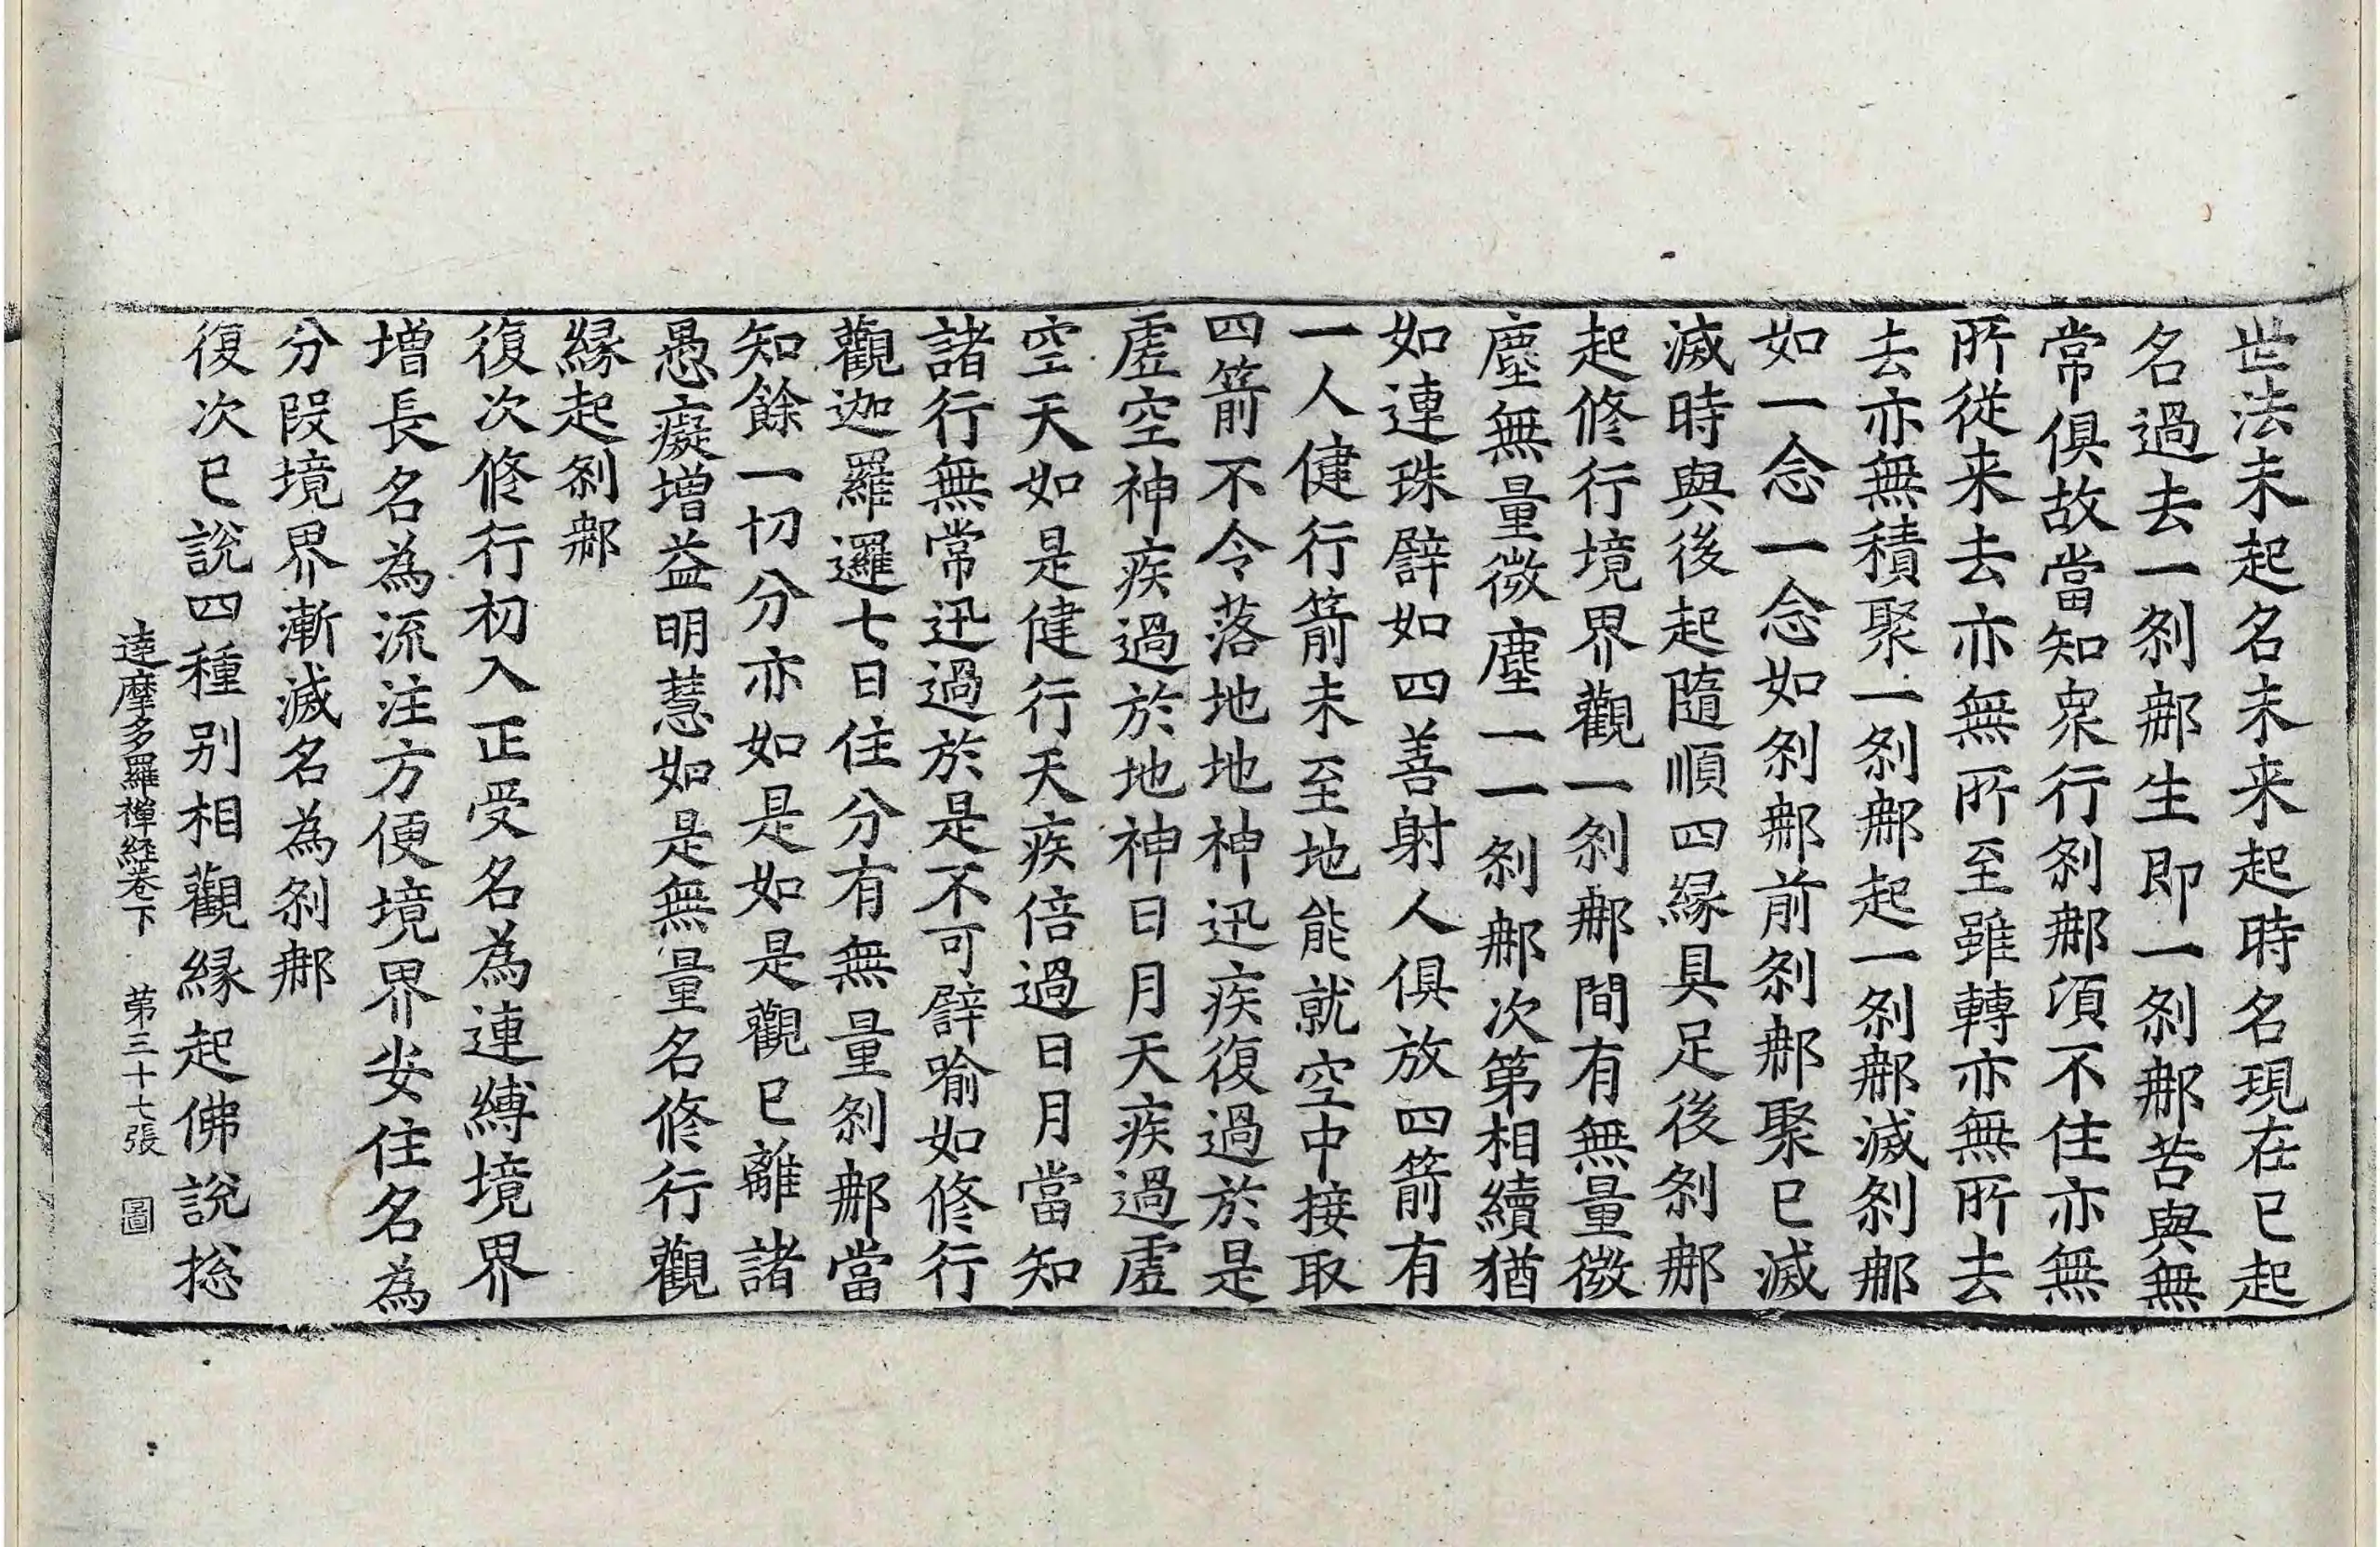 世法未起名未来起時名現在已起
名過去一刹那生即一刹那苦與無
常俱故當知衆行刹那湏不住亦無
所従来去亦無所至雖轉亦無所去
去亦無積聚一刹那起一刹那滅刹那
如一念一念如刹那前刹那聚已滅
滅時與後起隨順四縁具足後刹那
起修行境界觀一刹那間有無量微
塵無量微塵一一刹那次第相續猶
如連珠譬如四善射人俱放四箭有
一人健行箭未至地能就空中接取
四箭不令落地地神迅疾復過於是
虚空神疾過於地神日月天疾過虚
空天如是健行天疾倍過日月當知
諸行無常迅過於是不可譬喻如修行
觀迦羅邏七日住分有無量刹那當
知餘一切分亦如是如是觀已離諸
愚癡增益明慧如是無量名修行觀
縁起刹那
復次修行初入正受名為連縛境界
增長名為流注方便境界安住名為
分段境界漸滅名為刹那
復次已說四種别相觀縁起佛說揔
達摩多羅禪経卷下 苐三十七張 圖